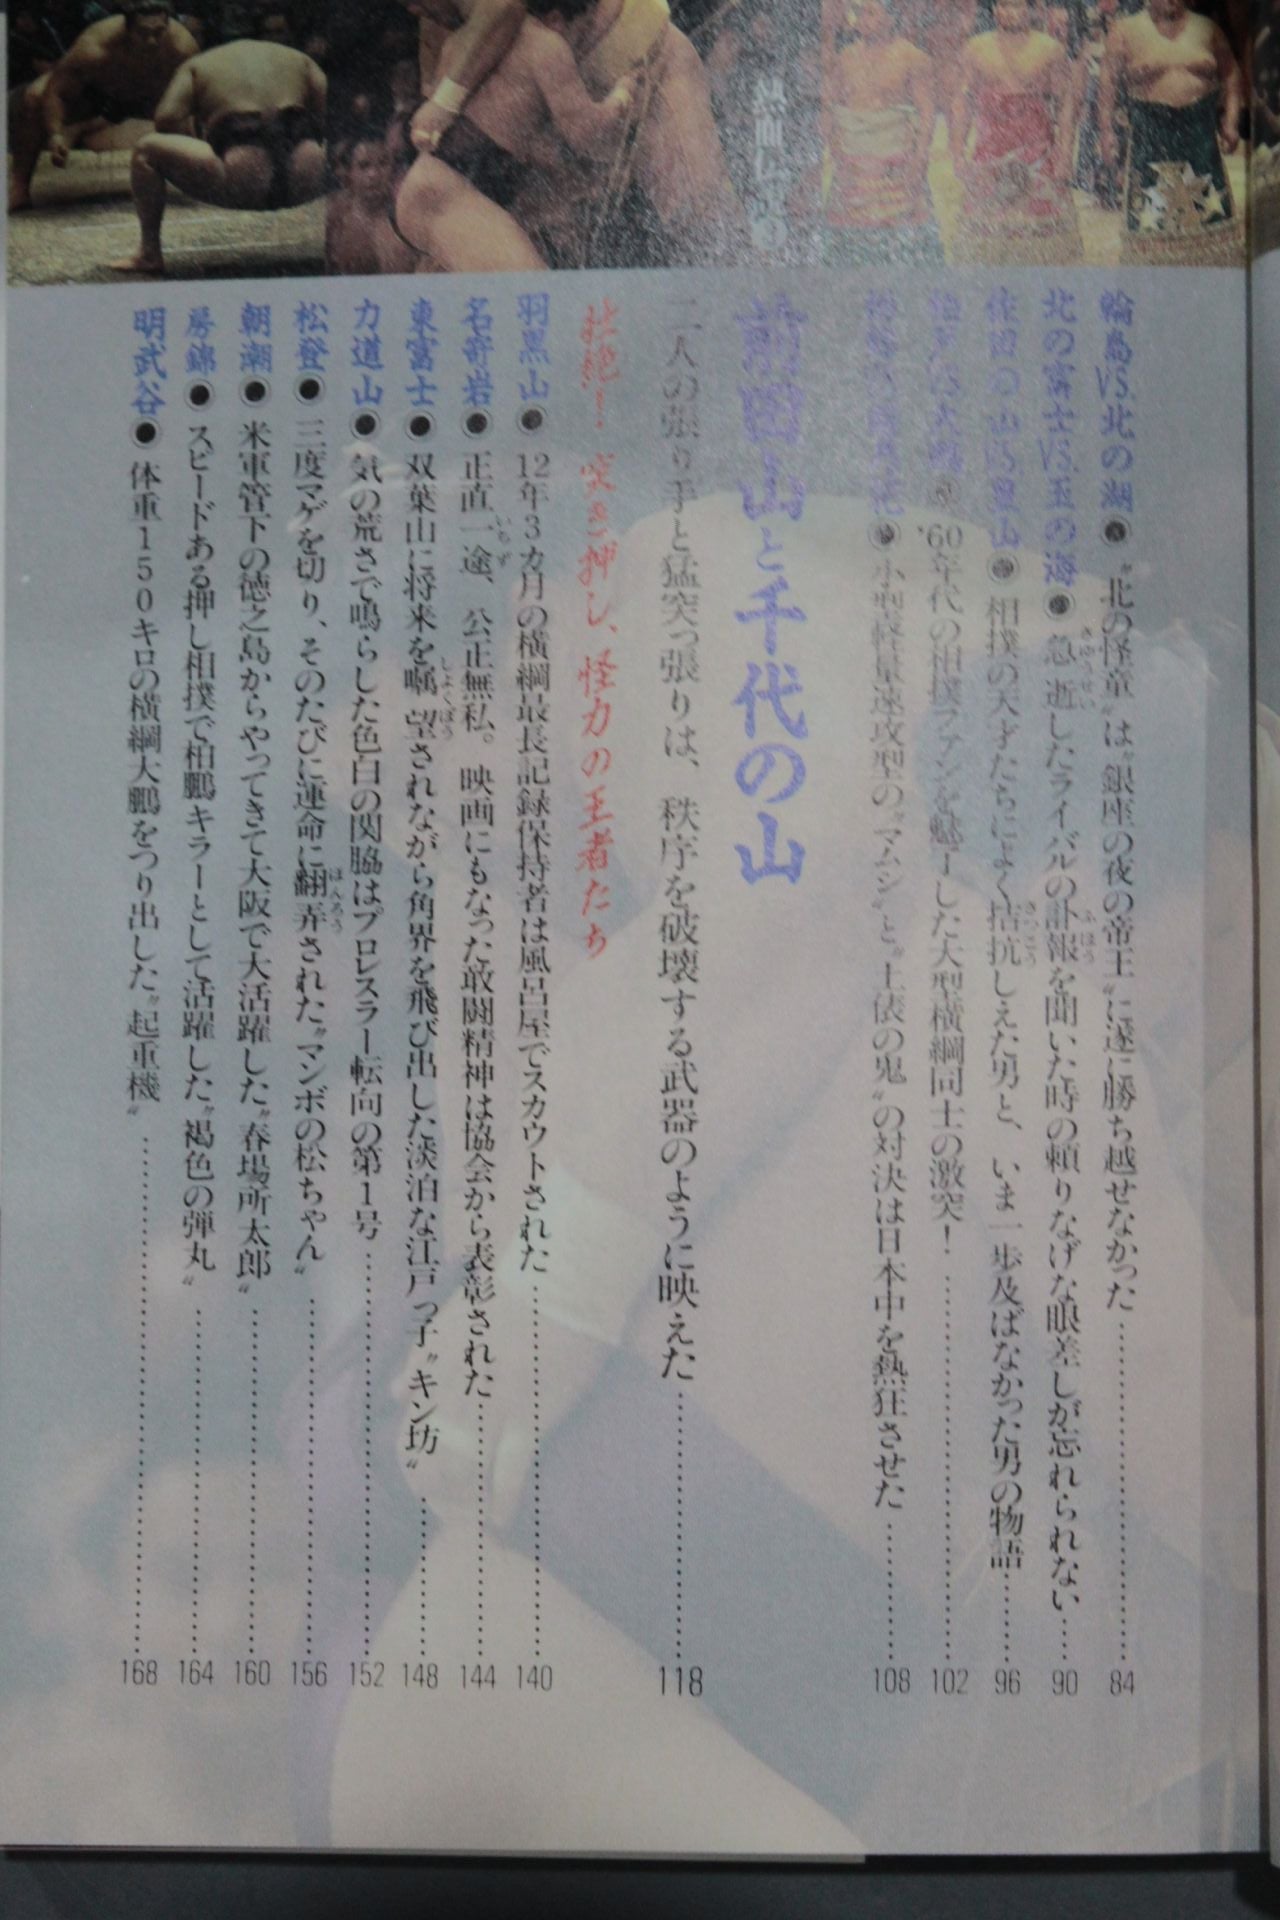 輪島VS.北の湖●〝北の怪童〟は〝銀座の夜の帝王〟に遂に勝ち越せなかった……84
北の富士VS.玉の海●急逝したライバルの訃報を聞いた時の頼りなげな眼差しが忘れられない……90
佐田の山VS.豊山●相撲の天才たちによく拮抗しえた男と、いま一歩及ばなかった男の物語……96
'60年代の相撲ファンを魅了した大型横綱同士の激突!……102
●小型軽量速攻型の〝マムシ〟と〝土俵の鬼〟の対決は日本中を熱狂させた……108
熱血仁寛3
前田山と千代の山
二人の張り手と猛突っ張りは、秩序を破壊する武器のように映えた……118
壮絶!突き押し、怪力の王者たち
羽黒山●12年3カ月の横綱最長記録保持者は風呂屋でスカウトされた……140
名寄岩●正直一途、公正無私。映画にもなった敢闘精神は協会から表彰された……144
東富士●双葉山に将来を嘱望されながら角界を飛び出した淡泊な江戸っ子〝キン坊〟……148
力道山●気の荒さで鳴らした色白の関脇はプロレスラー転向の第1号……152
松登●三度マゲを切り、そのたびに運命に翻弄された〝マンボの松ちゃん〟……156
朝潮●米軍管下の徳之島からやってきて大阪で大活躍した〝春場所太郎〟……160
房錦●スピードある押し相撲で柏鵬キラーとして活躍した〝褐色の弾丸〟……164
明武谷●体重150キロの横綱大鵬をつり出した〝起重機〟……168